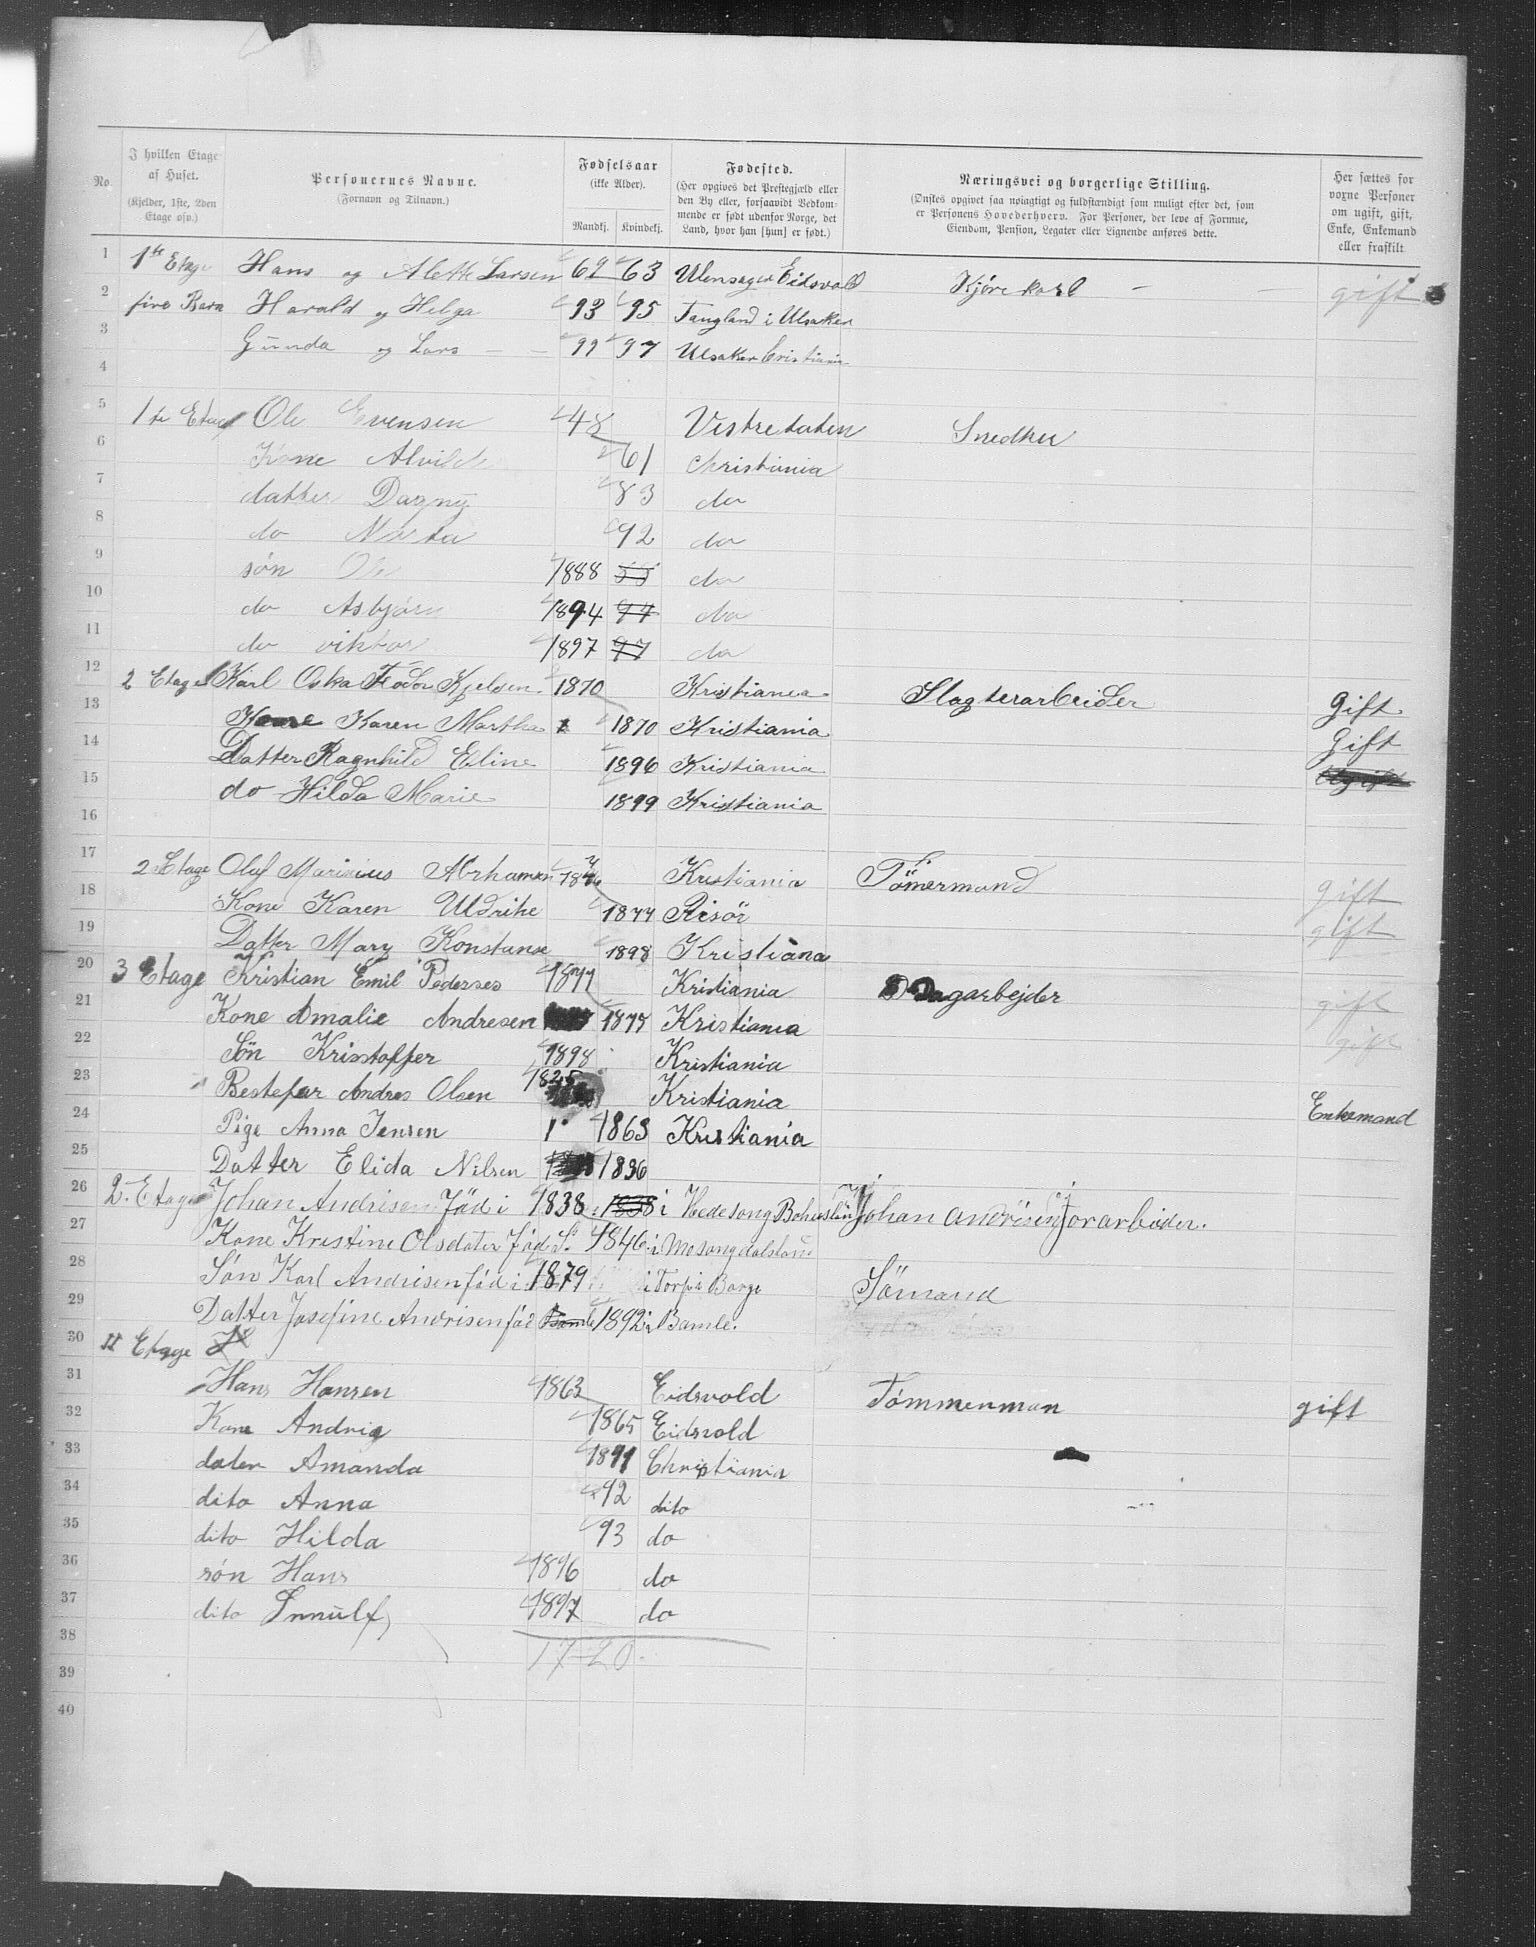 No. | I hvilken Etage af Huset. (Kjelder, 1ste, 2den Etage osv.) | Personernes Navne. (Fornavn og Tilnavn.) | Fødselsaar (ikke Alder). Mandkj. Kvindekj. | Fødested. (Her opgives det Prestegjæld eller den By eller, forsaavidt Vedkommende er født udenfor Norge, det Land, hvor han [hun] er født.) | Næringsvei og borgerlige Stilling. (Ønskes opgivet saa nøiagtigt og fuldstændigt som muligt efter det, som er Personens Hovederhverv. For Personer, der leve af Formue, Eiendom, Pension, Legater eller Lignende anføres dette. | Her sættes for voxne Personer om ugift, gift, Enke, Enkemand eller fraskilt
1 1ste Etage Hans og Alette Larsen 62 63 Ulensager Eidsvold Kjørekarl — — gift
2 fire Barn Harald og Helga 93 95 Tangland i Ulsaker
3 Gunda og Lars — — 99 97 Ulsaker Cristiania
4
5 1te Etage Ole Evensen 48 Vestre toten Snedker
6 Kone Alvilde 61 Christiania
7 datter Dagny 83 do
8 do Marta 92 do
9 søn Ole 1888 do
10 do Asbjørn 1894 97 do
11 do viktor 1897 97 do
12 2 Etage Karl Oska Feodor Kjelsen 1870 Kristiania Slagterarbeider Gift
13 Kone Karen Martha 1 1870 Kristiania Gift
14 Datter Ragnhild Eline 1896 Kristiania Ugift
15 do Hilda Marie 1899 Kristiania
16
17 2 Etage Oluf Marinius Abrhamsen Kristiania Tömermand gift
18 Kone Karen Uldrike 1877 Risör gift
19 Datter Mary Konstanse 1898 Kristiana
20 3 Etage Kristian Emil Pedersen 1877 Kristiania Dagarbejder gift
21 Kone Amalie Andresen 1877 Kristiania gift
22 Sön Kristoffer 1898 Kristiania
23 Bestefar Andres Olsen 1825 Kristiania Enkemand
24 Pige Anna Jensen 1 1863 Kristiania
25 Datter Elida Nilsen 1896
26 2. Etage Johan Andrisen föd i 1838 1838 i Hedesong Bohuslän Johan Andrisen Jorarbeider.
27 Kone Kristine Olsdater föd 1846 i Mosong dalsland
28 Sön Karl Andrisen föd i 1879 i Torp i Borge Sömand
29 Datter Josefine Andrisen föd Bamle 1892 i Bamle.
30 II Etage
31 Hans Hansen 1863 Eidsvold Tømmerman gift
32 Kone Andria 1865 Eidsvold
33 dater Amanda 1891 Christiania
34 dito Anna 92 dito
35 dito Hilda 93 do
36 søn Hans 1896 do
37 dito Innulf 1897 do
38 17-20.
39
40